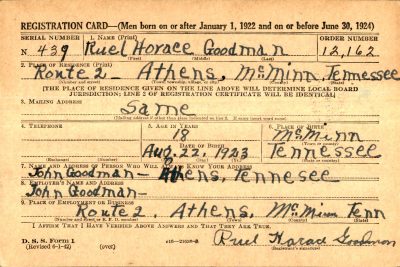 REGISTRATION CARD—(Men born on or after January 1, 1922 and on or before June 30, 1924)
SERIAL NUMBER 1. NAME (Print) ORDER NUMBER
N 439 Ruel Horace Goodman 12,162
(First) (Middle) (Last)
2. PLACE OF RESIDENCE (Print)
Route 2 - Athens, McMinn, Tennessee
[THE PLACE OF RESIDENCE GIVEN ON THE LINE ABOVE WILL DETERMINE LOCAL BOARD
JURISDICTION; LINE 2 OF REGISTRATION CERTIFICATE WILL BE IDENTICAL]
3. MAILING ADDRESS
Same
4. TELEPHONE 5. AGE IN YEARS 6. PLACE OF BIRTH
18 McMinn
DATE OF BIRTH
Aug. 22, 1923 Tennessee
(Exchange) (Number) (Mo.) (Day) (Yr.)
7. NAME AND ADDRESS OF PERSON WHO WILL ALWAYS KNOW YOUR ADDRESS
John Goodman - Athens, Tennesee
8. EMPLOYER'S NAME AND ADDRESS
John Goodman -
9. PLACE OF EMPLOYMENT OR BUSINESS
Route 2. Athens, McMinn Tenn
(Number and street or R. F. D. number) (Town) (County) (State)
I AFFIRM THAT I HAVE VERIFIED ABOVE ANSWERS AND THAT THEY ARE TRUE.
D. S. S. Form 1
(Revised 6-1-42) (over) Ruel Horace Goodman